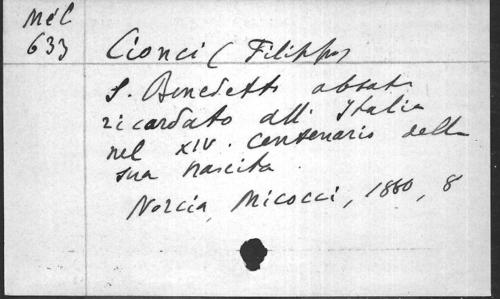 Mél
633
Cionci (Filippo)
S. Benedetto abbate
ricordato all' Italia
nel XIV. centenario della
sua nascita.
Norcia, Micocci, 1880, 8